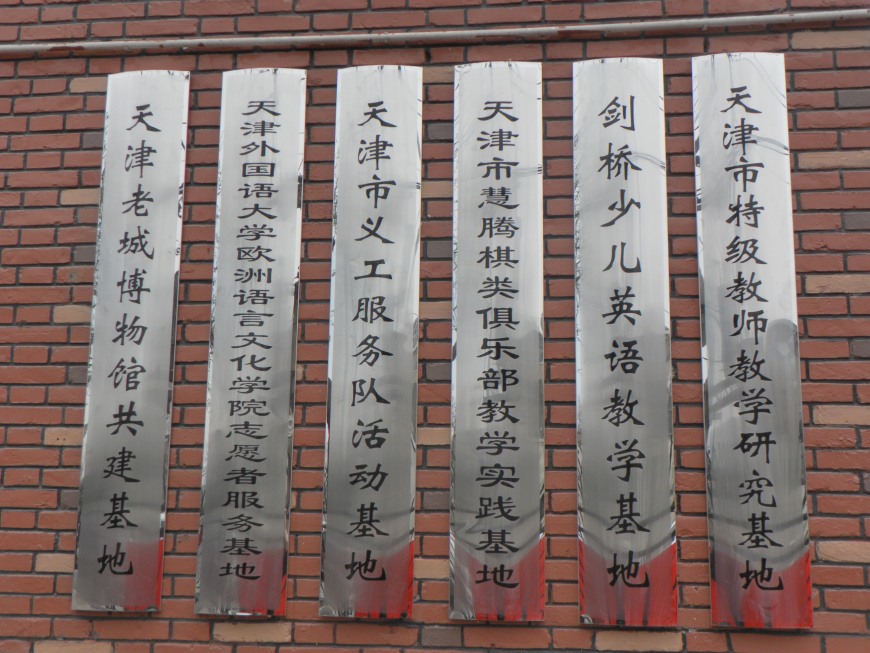 天津老城博物馆共建基地
天津外国语大学欧洲语言文化学院志愿者服务基地
天津市义工服务队活动基地
天津市慧腾棋类俱乐部教学实践基地
剑桥少儿英语教学基地
天津市特级教师教学研究基地